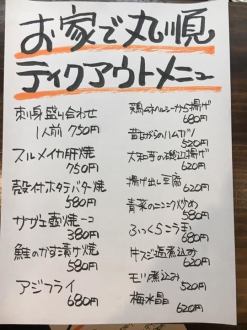 お家で丸順
テイクアウトメニュー
刺身盛り合わせ
1人前 750円
スルメイカ肝焼
750円
殻付ホタテバター焼
580円
サザエ壺焼 一コ
380円
鮭のかす漬け焼
580円
アジフライ
680円
鶏ムネ
から揚げ
680円
昔ながらのハムカツ
520円
揚げ
620円
揚げ出し豆腐
620円
青菜のニンニク炒め
580円
ふっくら
680円
牛スジ塩煮込み
620円
モツ煮込み
520円
梅水晶
620円